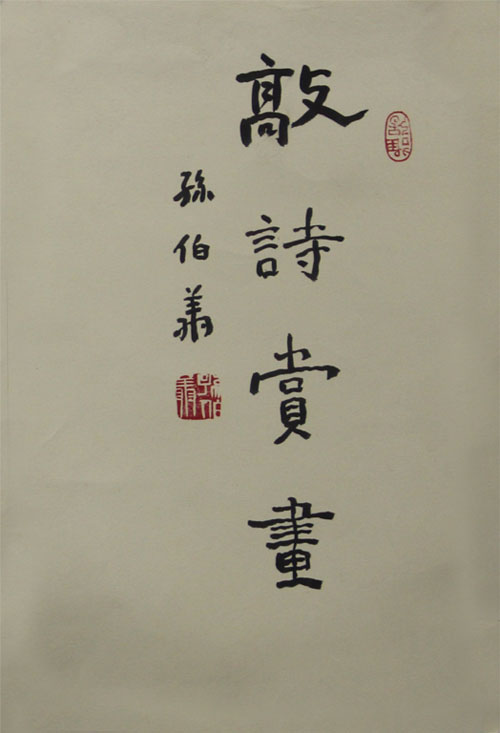 敲詩賞畫
孫伯翔